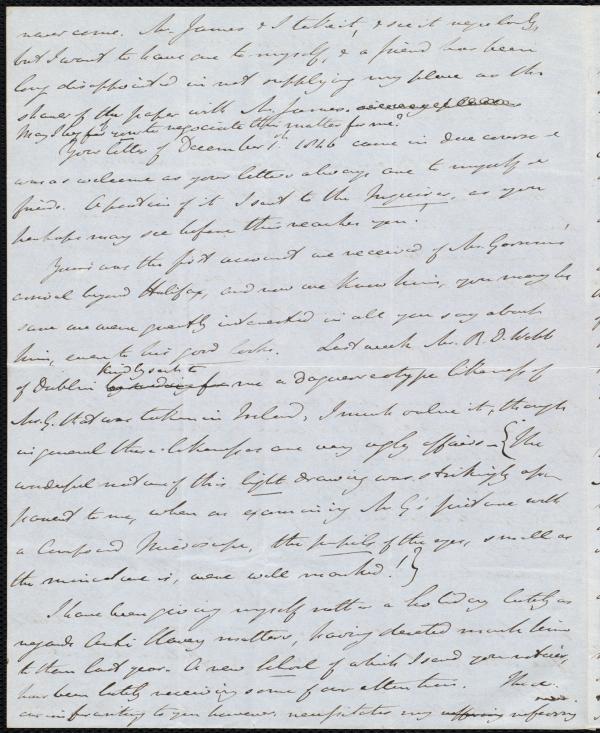 never come. Mr. James & I take it, & see it regularly,
but I want to have one to myself, & a friend has been
long disappointed in not supplying my place as the
sharer of the paper with Mr. James.
May I beg for you to negociate this matter for me?
Your letter of December 1st 1846 came in due course &
was as welcome as your letters always are to myself &
friends. A portion of it I sent to the Inquirer, as you
perhaps may see before this reaches you!
Yours was the first account we received of Mr. Garrison's
arrival beyond Halifax, and now we know him, you may be
sure we were greatly interested in all you say about
him, even to his good looks. Last week Mr. R. D. Webb
of Dublin kindly sent to me a daguerreotype likeness of
Mr G. that was taken in Ireland, I much value it, though
in general these likenesses are very ugly affairs – {The
wonderful nature of this light drawing was strikingly apparent
to me, when on examining Mr G's picture with
a Compound Microscope, the pupils of the eyes, small as
the miniature is, were well marked!}
I have been giving myself rather a holiday lately as
regards Anti Slavery matters, having devoted much time
to them last year. A new school of which I send you notices,
has been lately receiving some of our attention. These
in writing to you however necessitates my referring